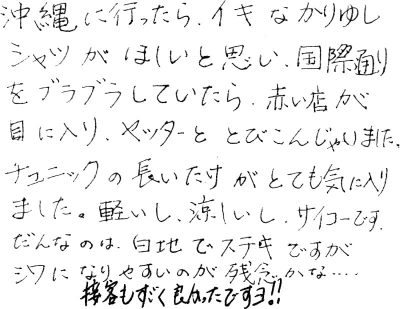 沖縄に行ったら、イキなかりゆし
シャツがほしいと思い、国際通り
をブラブラしていたら、赤い店が
目に入り、ヤッターととびこんじゃいました。
チュニックの長いたけがとても気に入り
ました。軽いし、涼しいし、サイコーです。
だんなのは、白地でステキですが
シワになりやすいのが残念かな....
接客もすごく良かったですヨ!!